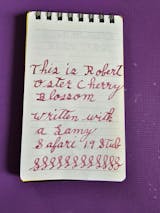 This is Robert
oster Cherry
Blossom
written with
a Lamy
Safari 1.9 Stub